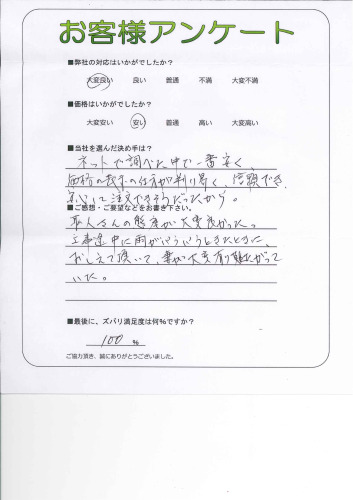 お客様アンケート
■弊社の対応はいかがでしたか？
大変良い 良い 普通 不満 大変不満
■価格はいかがでしたか？
大変安い 安い 普通 高い 大変高い
■当社を選んだ決め手は？
ネットで調べた中で一番安く、
価格の表示の仕方が判り易く、信頼でき
安心して注文できそうだったから。
■ご感想・ご要望などをお書き下さい。
職人さんの態度が大変良かった。
工事途中に雨が
おしえて頂いて、妻が大変有難がって
いた。
■最後に、ズバリ満足度は何％ですか？
100 %
ご協力頂き、誠にありがとうございました。